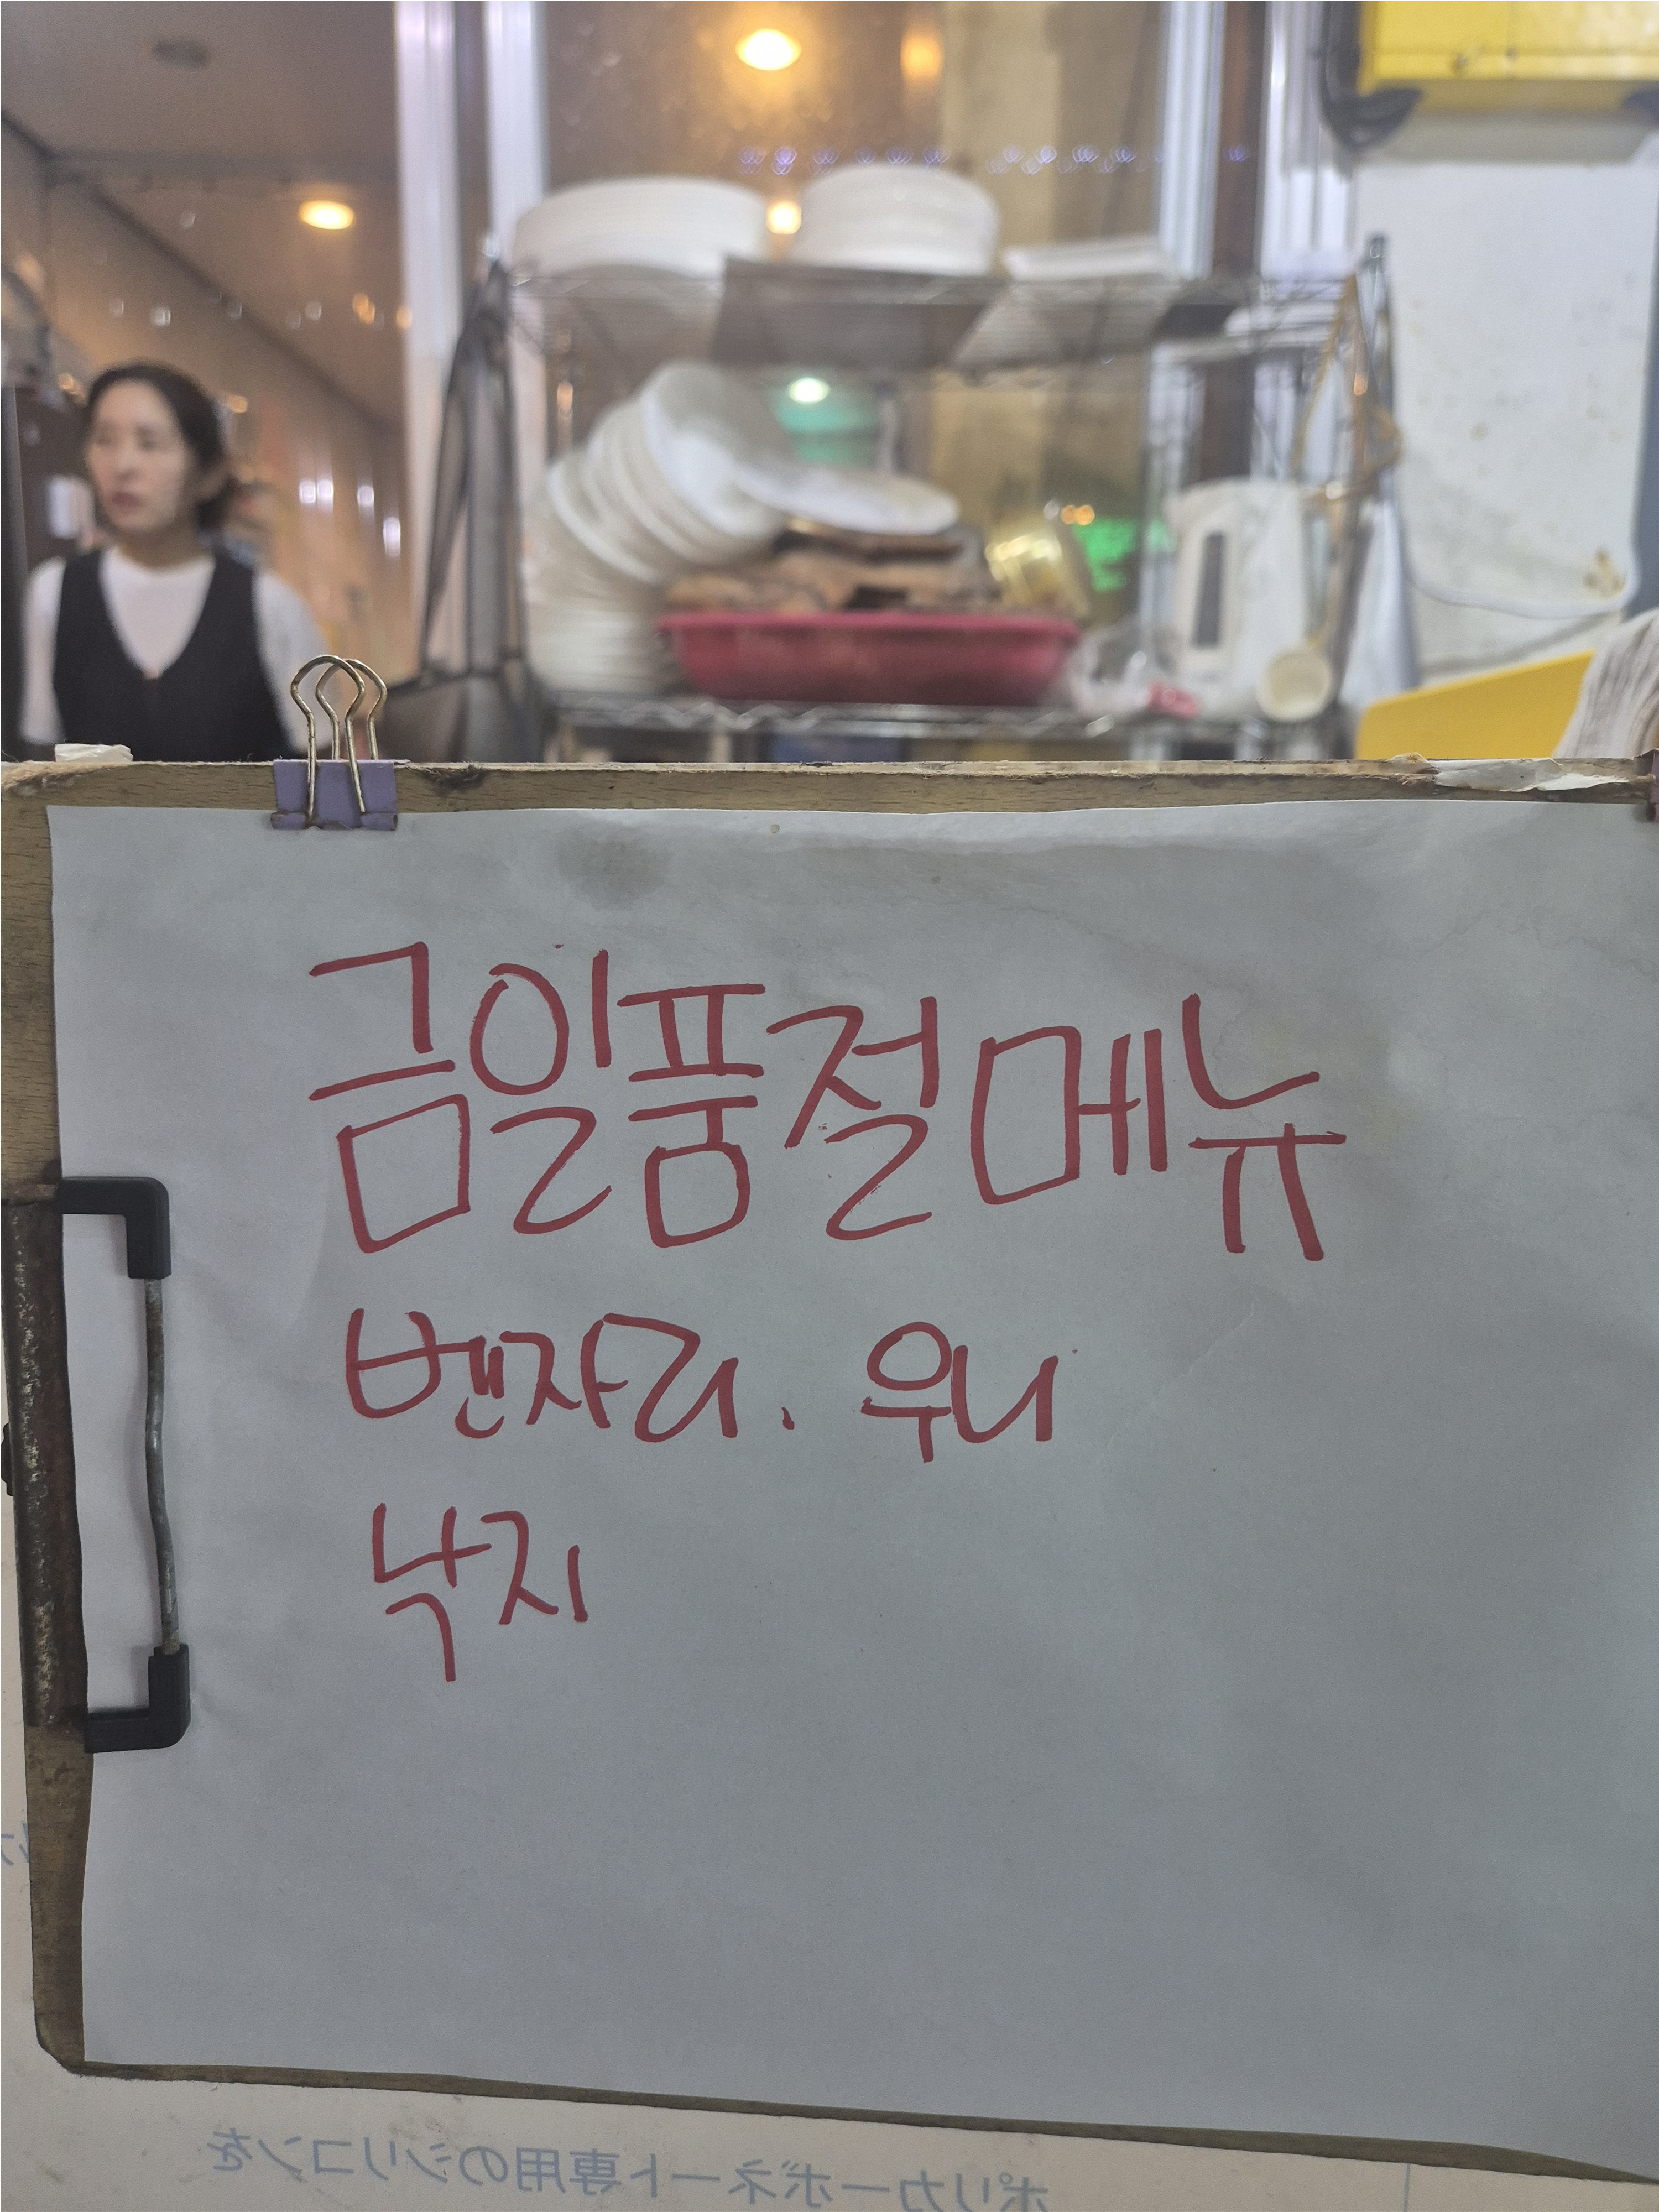 금일품절메뉴
벤자리. 우니
낙지
ポリカーボネート専用のシリコンを